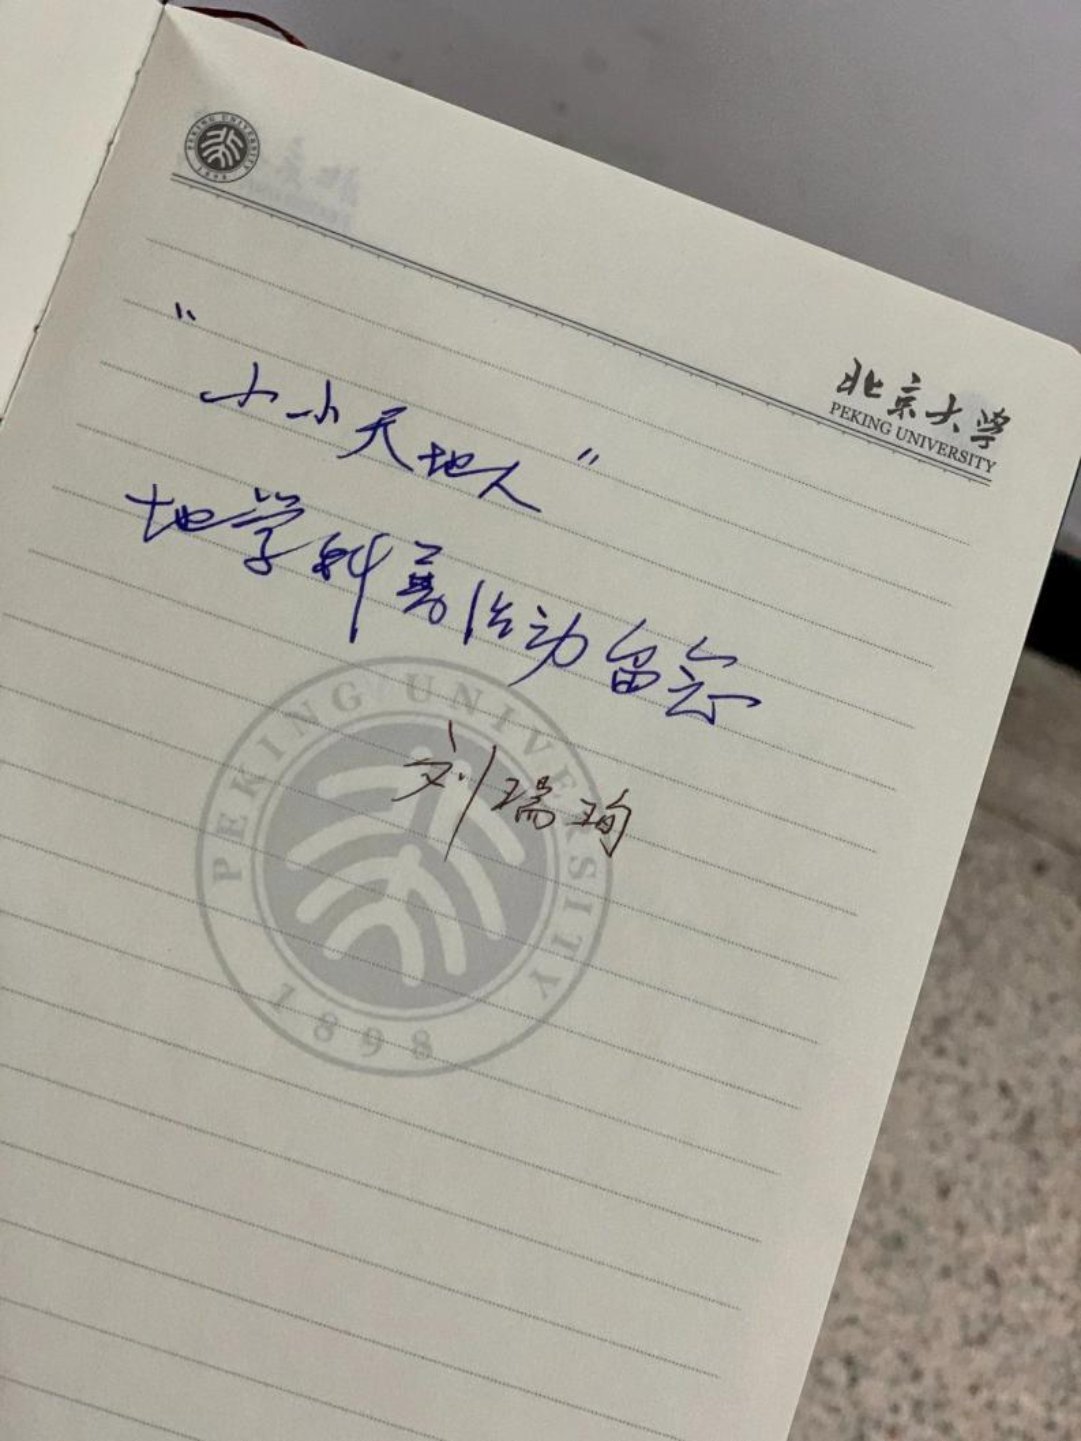 PEKING UNIVERSITY
1898
北京大学
PEKING UNIVERSITY
"小小天地人"
地学科普活动留念
刘瑞珣
PEKING UNIVERSITY
1898